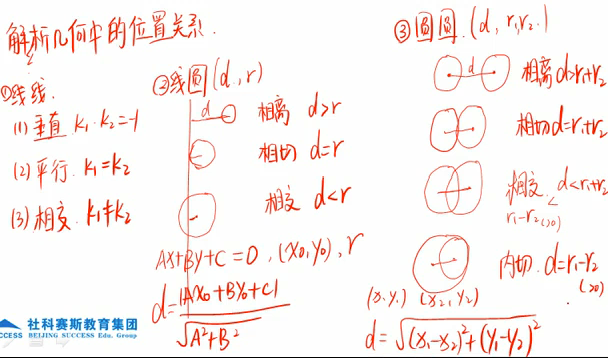 解析几何中的位置关系.
①线线.
(1) 垂直 k₁·k₂=-1
(2) 平行. k₁=k₂
(3) 相交. k₁≠k₂
②线圆 (d, r)
d 相离 d>r
相切 d=r
相交 d<r
Ax+By+C=0, (x₀,y₀), r
d=|Ax₀+By₀+C|
√A²+B²
③圆圆. (d, r₁r₂.)
d 相离d>r₁+r₂
相切d=r₁+r₂
相交. d<r₁+r₂
r₁-r₂(>0) <
内切. d=r₁-r₂
(>0)
(x₁y₁) (x₂, y₂)
d=√(x₁-x₂)²+(y₁-y₂)²
社科赛斯教育集团
CCESS BEIJING SUCCESS Edu. Group